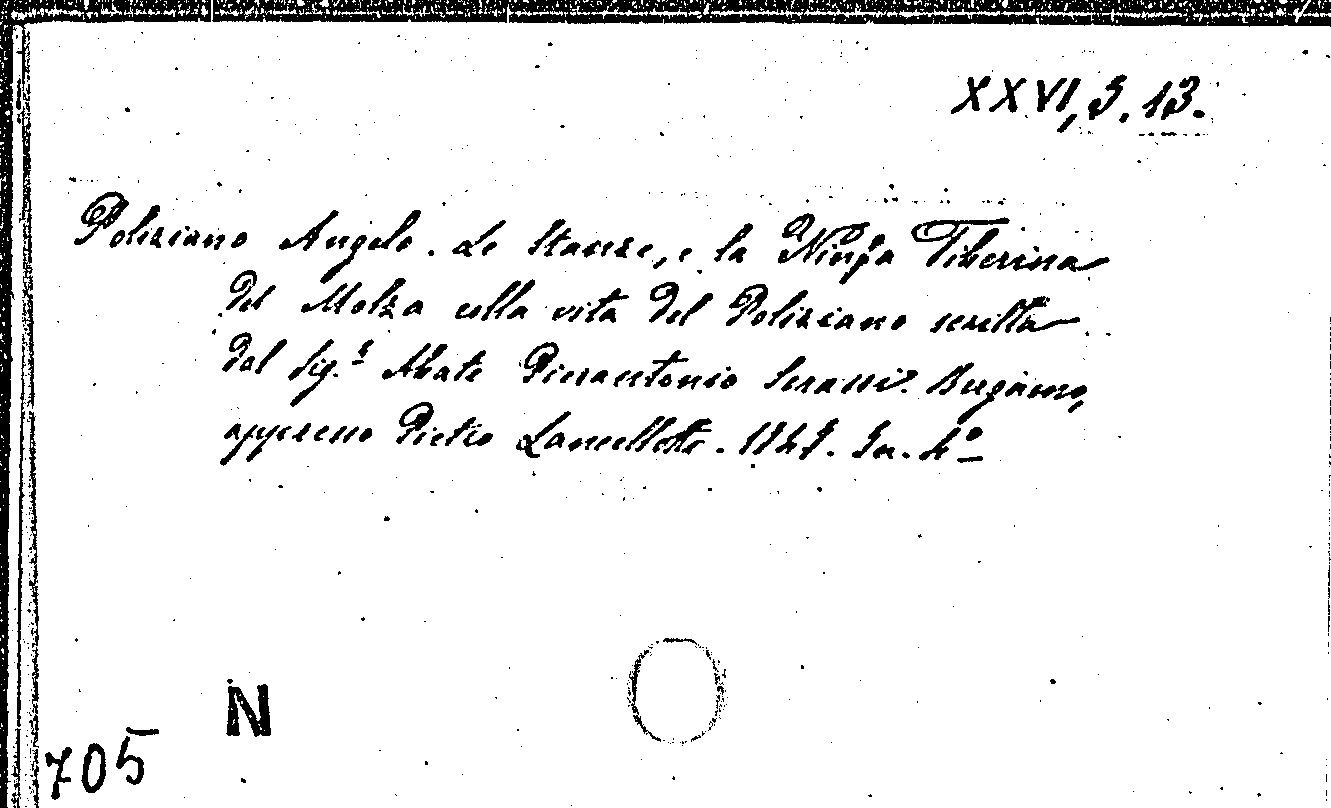 XXVI, 3. 13.
Poliziano Angelo. Le Stanze, e la Ninfa Tiberina
del Molza colla vita del Poliziano scritta
dal Sig.r Abate Pierantonio Serassi. Bergamo,
appresso Pietro Lancellotti. 1747. In-4º
N
705